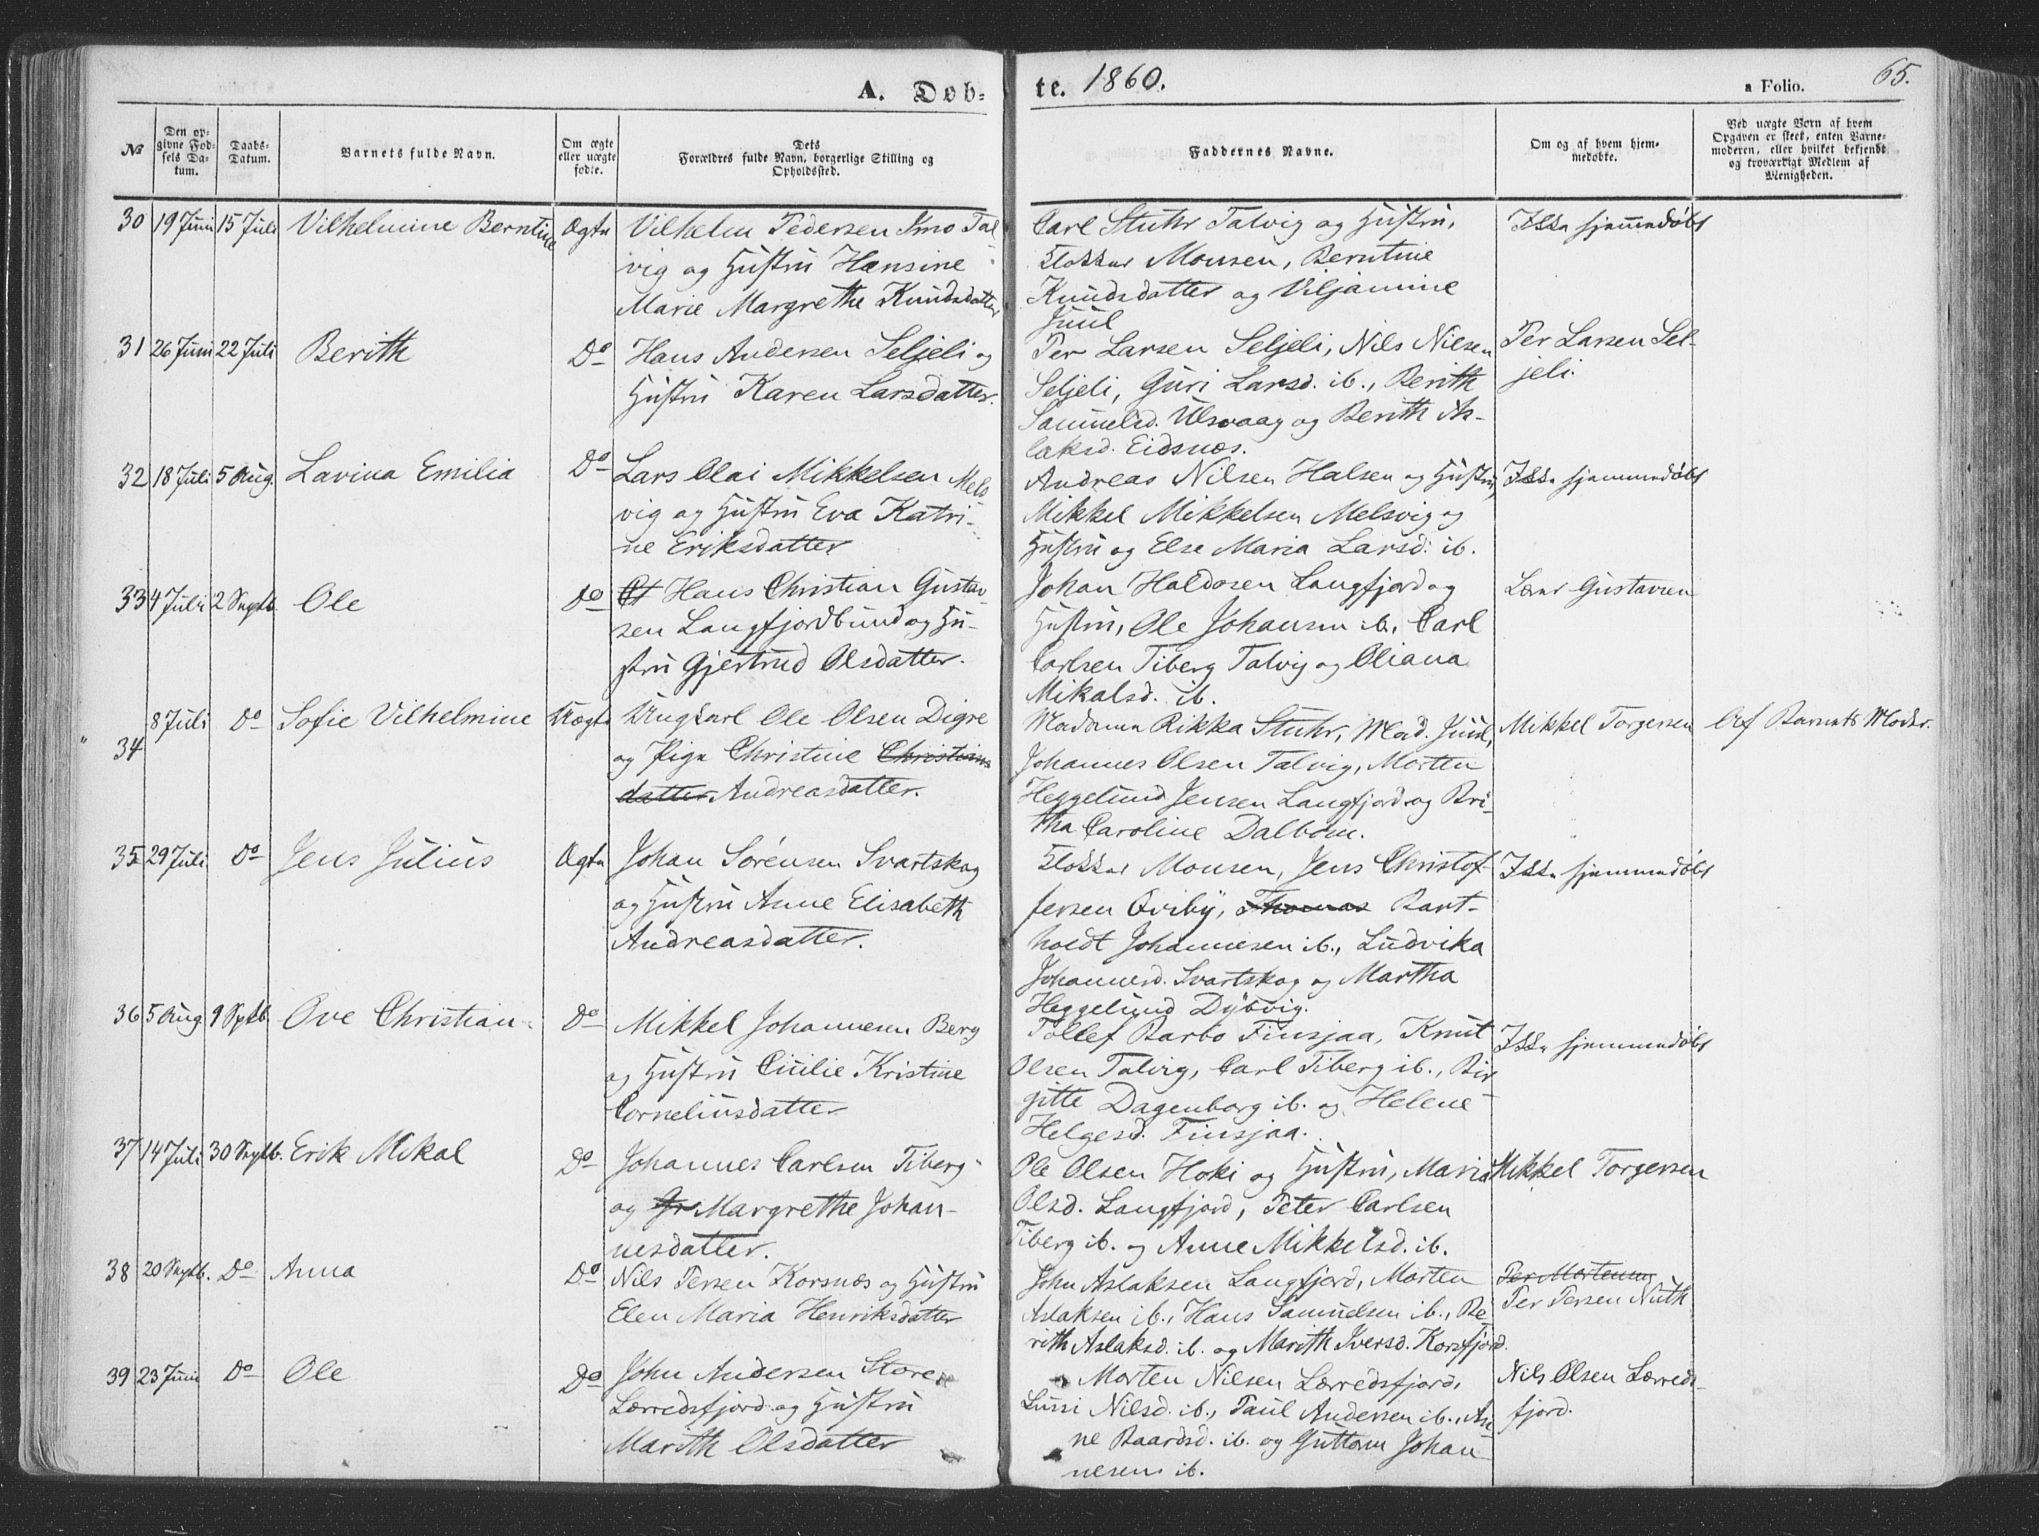 A. Døb-
te. 1860.
a Folio. 65.
№
Den op-
givne Fød-
sels Da-
tum.
Daabs-
Datum.
Barnets fulde Navn.
Om ægte
eller uægte
fødte.
Dets
Forældres fulde Navn, borgerlige Stilling og
Opholdssted.
Faddernes Navne.
Om og af hvem hjem-
medøbte.
Ved uægte Børn af hvem
Opgaven er skeet, enten Barne-
moderen, eller hvilket bekjendt
og troværdigt Medlem af
Menigheden.
30 19 Juni 15 Juli Vilhelmine Berntine Ægte
Vilhelm Pedersen Tal-
vig og Hustru Hansine
Marie Margrethe Knudsdatter
Carl Stuhr Talvig og Hustru,
Klokker Monsen, Berntine
Knudsdatter og Viljamine
Juul
Ikke hjemmedøbt
31 26 Juni 22 Juli Berith Do
Hans Andersen Seljeli og
Hustru Karen Larsdatter.
Per Larsen Seljeli, Nils Nilsen
Seljeli, Guri Larsd. ib., Berith
Samuelsd. Ulsvaag og Berith As-
laksd. Eidsnæs.
Per Larsen Sel-
jeli.
32 18 Juli 5 Aug. Lavina Emilia Do
Lars Olai Mikkelsen Mels
vig og Hustru Eva Katri-
ne Eriksdatter
Andreas Nilsen Halsen og Hustru,
Mikkel Mikkelsen Melsvig og
Hustru og Else Maria Larsd. ib.
Ikke hjemmedøbt
33 4 Juli 2 Septb. Ole Do
Hans Christian Gustav-
sen Langfjordbund og Hu-
stru Gjertrud Olsdatter.
Johan Haldosen Langfjord og
Hustru, Ole Johansen ib., Carl
Carlsen Tiberg Talvig og Oliana
Mikalsd. ib.
Lars Gustavsen
34 8 Juli Do Sofie Vilhelmine Uægte
Ungkarl Ole Olsen Digre
og Pige Christine Christians
datter Andreasdatter.
Madame Rikka Stuhr, Mad. Juul,
Johannes Olsen Talvig, Morten
Heggelund Jensen Langfjord og Bri-
tha Caroline Dalbom.
Mikkel Torgersen
Af Barnets Moder.
35 29 Juli Do Jens Julius Ægte
Johan Sørensen Svartskog
og Hustru Anne Elisabeth
Andreasdatter.
Klokker Monsen, Jens Christof-
fersen Øviby, Thomas Bart-
holdt Johannesen ib., Ludvika
Johannesd. Svartskog og Martha
Heggelund Dybvig.
Ikke hjemmedøbt
36 5 Aug 9 Sptb. Ove Christian Do
Mikkel Johannesen Berg
og Hustru Cicilie Kristine
Corneliusdatter
Tollef Barbo Finsjaa, Knut
Olsen Talvig, Carl Tiberg ib., Bir
gitte Dagenborg ib. og Helene
Helgesd. Finsjaa.
Ikke hjemmedøbt
37 14 Juli 30 Septb. Erik Mikal Do
Johannes Carlsen Tiberg
og Margrethe Johan-
nesdatter.
Ole Olsen Hoki og Hustru, Maria
Olsd. Langfjord, Peter Carlsen
Tiberg ib. og Anne Mikkelsd. ib.
Mikkel Torgersen
38 20 Septb. Do Anna Do
Nils Persen Korsnæs og Hustru
Elen Maria Henriksdatter
John Aslaksen Langfjord, Morten
Aslaksen ib., Hans Samuelsen ib., Be
rith Aslaksd. ib. og Marith Iversd. Korsfjord.
Per Mortensen
Per Persen Nuth
39 23 Juni Do Ole Do
John Andersen Store
Lærredsfjord og Hustru
Marith Olsdatter
Morten Nilsen Lærredsfjord,
Lussi Nilsd. ib., Paul Andersen ib., An
ne Baardsd. ib. og Guttorm Johan
nesen ib.
Nils Olsen Lærreds-
fjord.